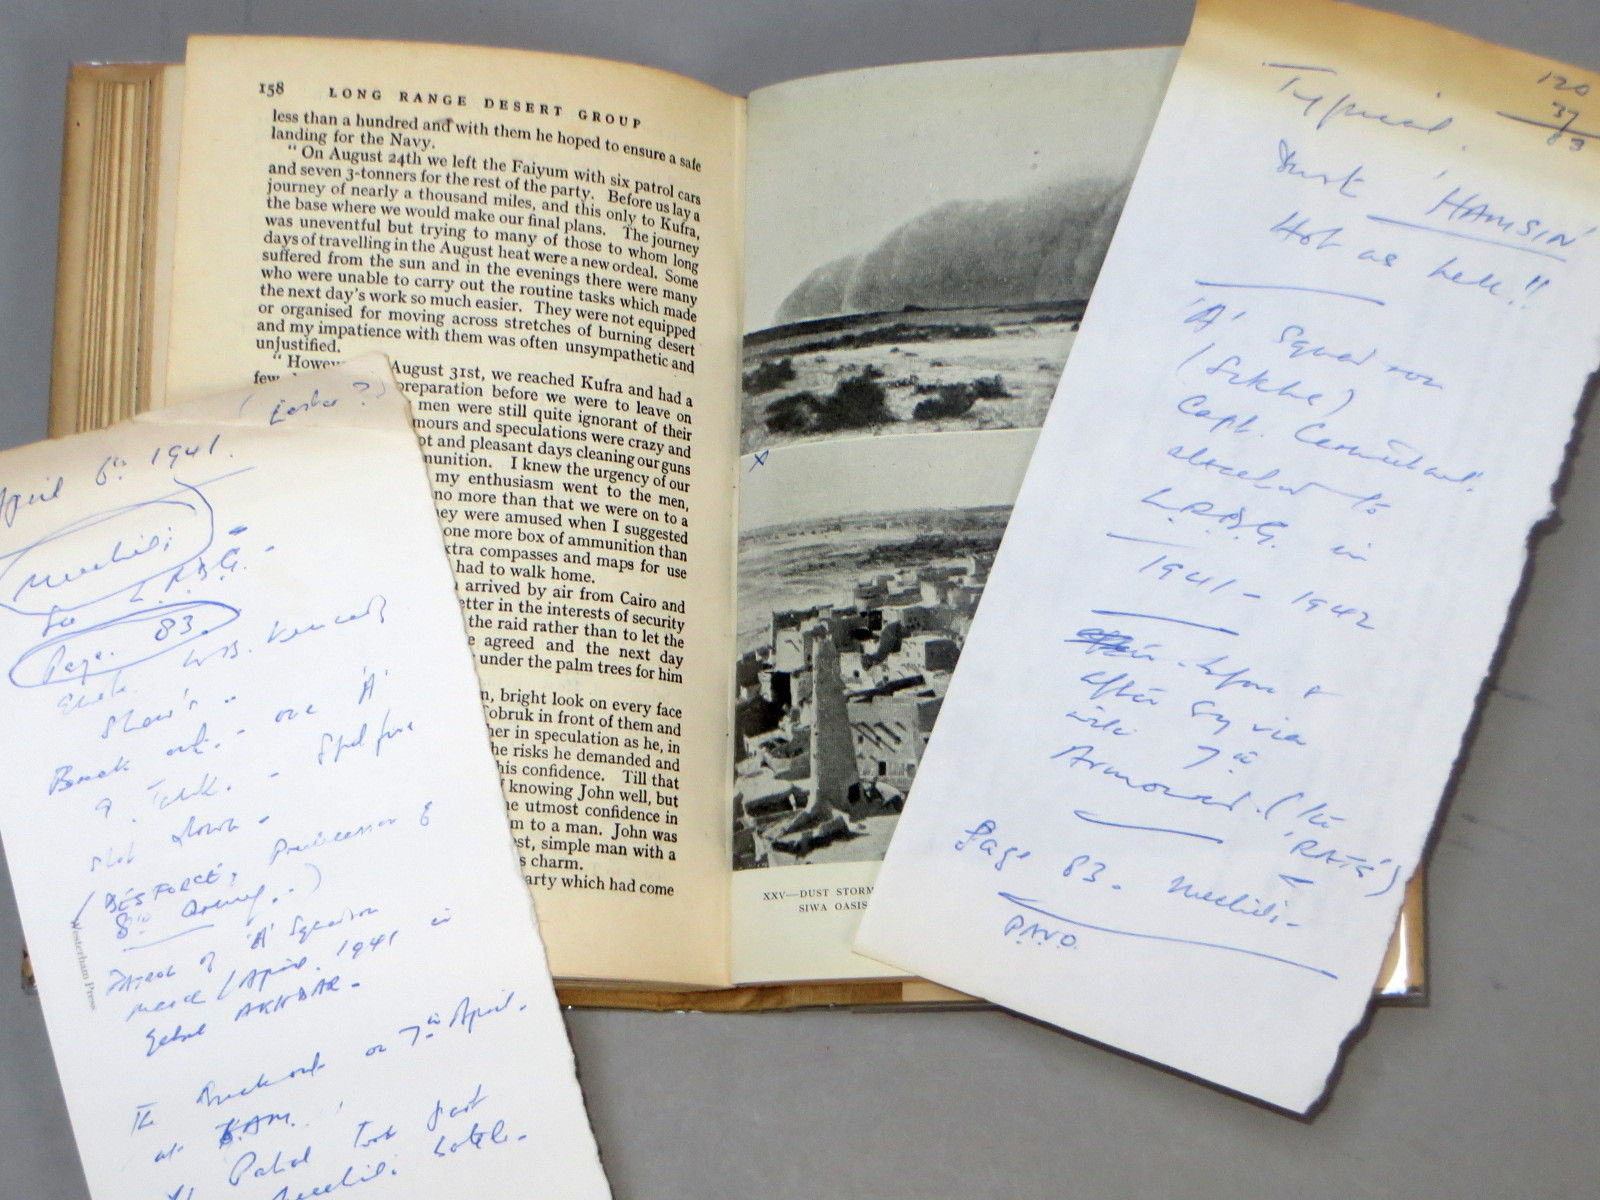 158 LONG RANGE DESERT GROUP
less than a hundred and with them he hoped to ensure a safe
landing for the Navy.
" On August 24th we left the Faiyum with six patrol cars
and seven 3-tonners for the rest of the party. Before us lay a
journey of nearly a thousand miles, and this only to Kufra,
the base where we would make our final plans. The journey
was uneventful but trying to many of those to whom long
days of travelling in the August heat were a new ordeal. Some
suffered from the sun and in the evenings there were many
who were unable to carry out the routine tasks which made
the next day's work so much easier. They were not equipped
or organised for moving across stretches of burning desert
and my impatience with them was often unsympathetic and
unjustified.
" Howev August 31st, we reached Kufra and had a
few preparation before we were to leave on
men were still quite ignorant of their
mours and speculations were crazy and
ot and pleasant days cleaning our guns
munition. I knew the urgency of our
my enthusiasm went to the men,
no more than that we were on to a
ey were amused when I suggested
one more box of ammunition than
xtra compasses and maps for use
had to walk home.
arrived by air from Cairo and
etter in the interests of security
the raid rather than to let the
e agreed and the next day
under the palm trees for him
n, bright look on every face
obruk in front of them and
her in speculation as he, in
he risks he demanded and
his confidence. Till that
knowing John well, but
he utmost confidence in
m to a man. John was
est, simple man with a
s charm.
arty which had come
x
XXV—DUST STORM
SIWA OASIS
April 6th 1941.
Mechili
L.R.D.G.
Page 83
W.B. Kennedy
Shaw's
Break out - one 'A'
Spitfire
shot down -
(DESFORCE, Predecessor of
8th Army.)
Patrol of 'A' Squadron
March / April 1941 in
Gebel AKHDAR -
The Breakout on 7th April.
at
Patrol took part
Mechili battle -
Westerham Press
120
37
83
Typical.
Dust 'HAMSIN'
Hot as hell!!
'A' Squadron
(Sikhs)
Capt.
attached to
L.R.D.G. in
1941 - 1942
before &
after Syria
with 7th
Armoured. (The
'RATS')
Page 83 - Mechili -
P.A.V.O.